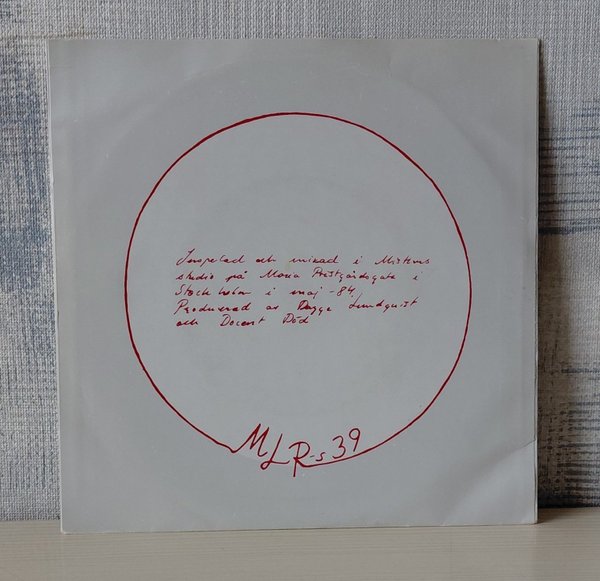 Inspelad och mixad i Mistens
studio på Maria Prästgårdsgata i
Stockholm i maj -84.
Producerad av Dagge Lundquist
och Docent Död
MLR-s 39